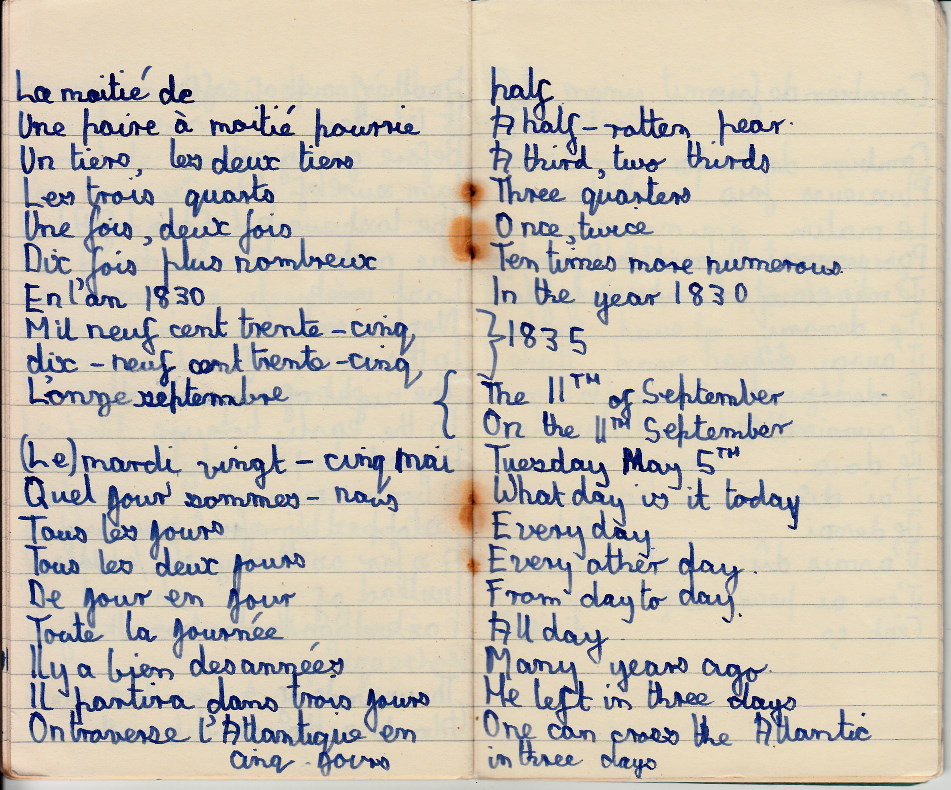 La moitié de
Une poire à moitié pourrie
Un tiers, les deux tiers
Les trois quarts
Une fois, deux fois
Dix fois plus nombreux
En l'an 1830
Mil neuf cent trente-cinq
dix-neuf cent trente-cinq
L'onze septembre
(Le) mardi vingt-cinq mai
Quel jour sommes-nous
Tous les jours
Tous les deux jours
De jour en jour
Toute la journée
Il y a bien des années
Il partira dans trois jours
On traverse l'Atlantique en
cinq jours
half
A half-rotten pear.
A third, two thirds
Three quarters
Once, twice
Ten times more numerous.
In the year 1830
}1835
{The 11TH of September
On the 11TH September
Tuesday May 5TH
What day is it today
Every day.
Every other day.
From day to day.
All day
Many years ago.
He left in three days
One can cross the Atlantic
in three days